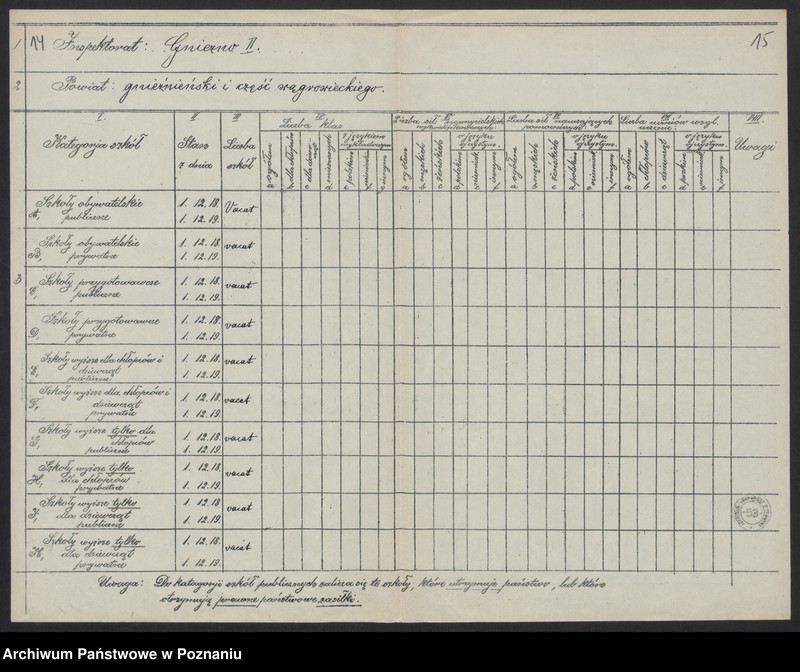 1 14 Inspektorat: Gniezno II. 15
2 Powiat: gnieźnieński i część wągrowieckiego.
I. II. III IV. V. VI. VII. VIII.
Kategorja szkół
Stan z dnia
Liczba szkół
Liczba klas
a, ogółem
b, dla chłopców
mieszanych
z językiem wykładowym
polskim
niemieckim
innym
Liczba sił nauczycielskich
a, ogółem
b, męskich
c, żeńskich
o języku ojczystym
polskim
niemieck.
innym
Liczba sił nauczających pomocniczych
a, ogółem
b, męskich
c, żeńskich
o języku ojczystym
polskim
niemieck.
innym
Liczba uczniów wzgl. uczenic:
a, ogółem
b, chłopców
c, dziewcząt
o języku ojczystym
polskim
niemieck.
innym
Uwagi
A, Szkoły obywatelskie publiczne 1. 12. 18. Vacat
1. 12. 19.
B, Szkoły obywatelskie prywatne 1. 12. 18. vacat
1. 12. 19.
3 C, Szkoły przygotowawcze publiczne 1. 12. 18. vacat
1. 12. 19.
D, Szkoły przygotowawcze prywatne 1. 12. 18. vacat
1. 12. 19.
E, Szkoły wyższe dla chłopców i dziewcząt publiczne 1. 12. 18. vacat
1. 12. 19.
F, Szkoły wyższe dla chłopców i dziewcząt prywatne 1. 12. 18. vacat
1. 12. 19.
G, Szkoły wyższe tylko dla chłopców publiczne 1. 12. 18. vacat
1. 12. 19.
H, Szkoły wyższe tylko dla chłopców prywatne 1. 12. 18. vacat
1. 12. 19.
J, Szkoły wyższe tylko dla dziewcząt publiczne 1. 12. 18 vacat
1. 12. 19.
K, Szkoły wyższe tylko dla dziewcząt prywatne 1. 12. 18. vacat
1. 12. 19.
-53-
Uwaga: Do katagorji szkół publicznych zalicza się te szkoły, które utrzymuje państwo, lub które
otrzymują prawne państwowe zasiłki.
Archiwum Państwowe w Poznaniu